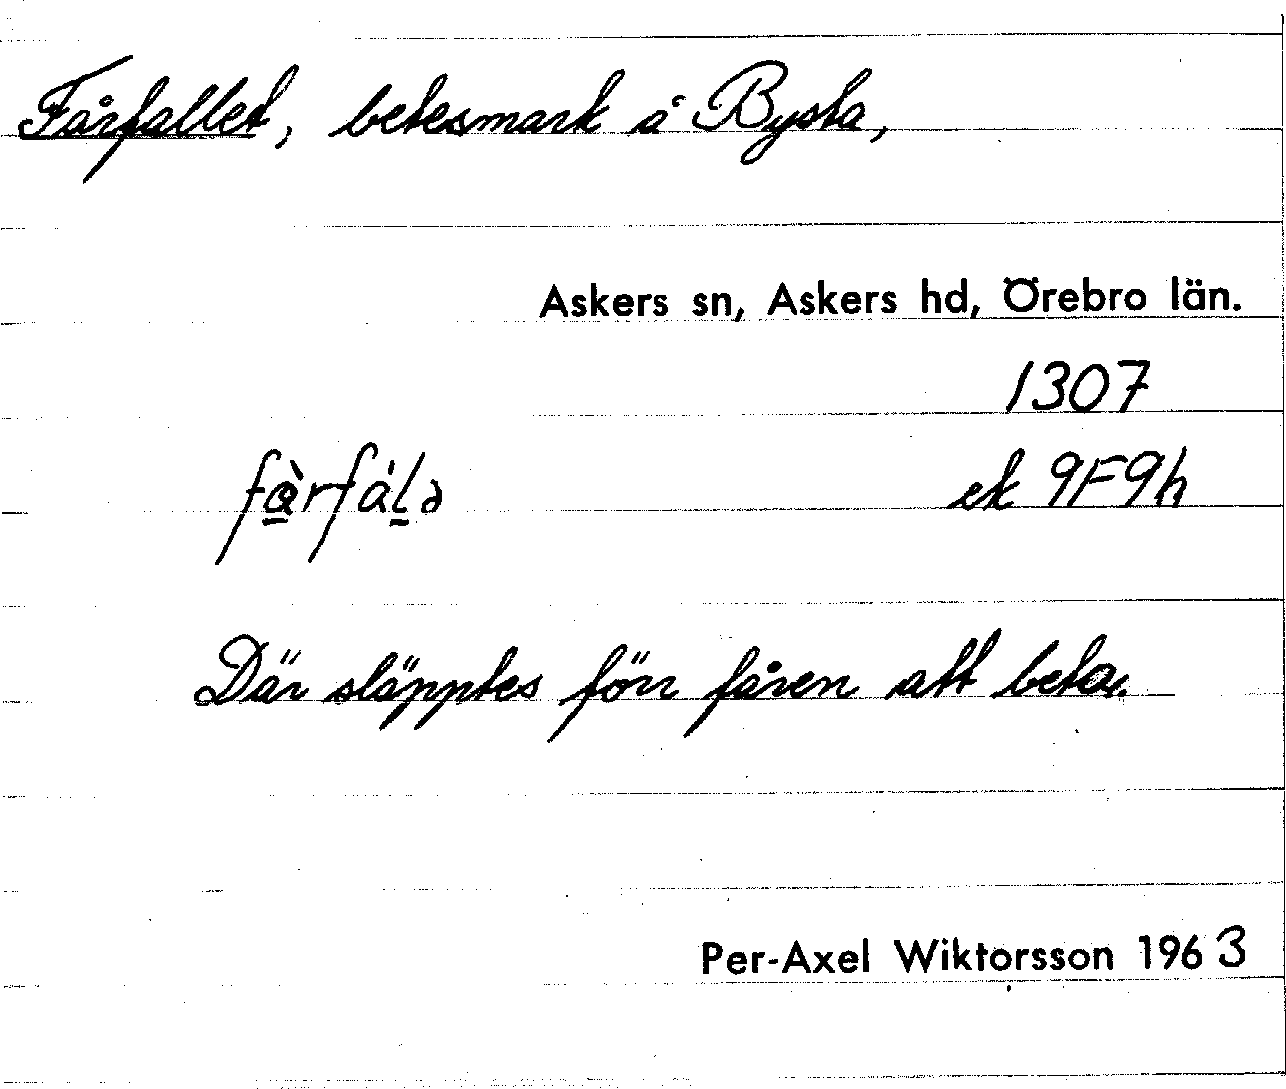 Fårfallet, betesmark å Bysta,
Askers sn, Askers hd, Örebro län.
1307
fà̲rfál̲ə ek 9F9h
Där släpptes förr fåren att beta.
Per-Axel Wiktorsson 1963